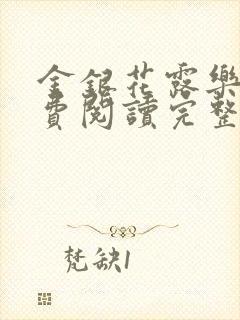 金銀花露樂
費閱讀完整
梵缺1